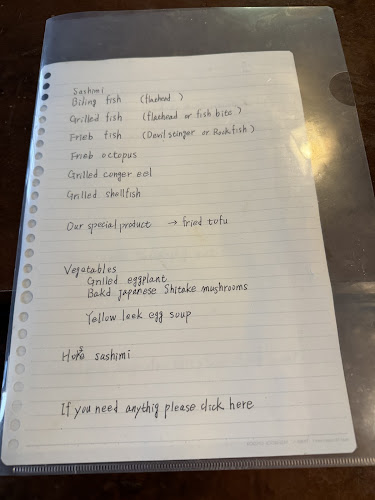 Sashimi
Biling fish (flathead)
Grilled fish (flathead or fish bite)
Frieb fish (Devil stinger or Rockfish)
Frieb octopus
Grilled conger eel
Grilled shellfish
Our special product → fried tofu
Vegatables
Grilled eggplant
Bakd japanese Shitake mushrooms
Yellow leek egg soup
sashimi
If you need anythig please click here